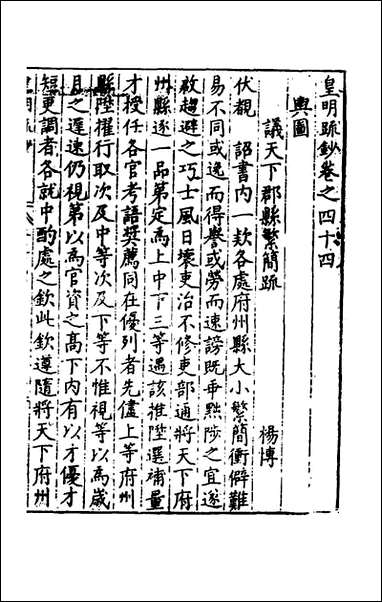 皇明疏鈔卷之四十四
輿圖
議天下郡縣繁簡疏 楊博
伏覩 詔書内一款各處府州縣大小繁簡衝僻難
易不同或逸而得譽或勞而速謗既乖黜陟之宜遂
啟趨避之巧士風日壞吏治不修吏部通將天下府
州縣逐一品第定爲上中下三等遇該推陞選補量
才授任各官考語奬薦同在優列者先儘上等府州
縣陞擢行取次及中等次及下等不惟視等以爲歲
月之遲速仍視第以爲官資之髙下内有以才優才
短更調者各就中酌處之欽此欽遵隨將天下府州